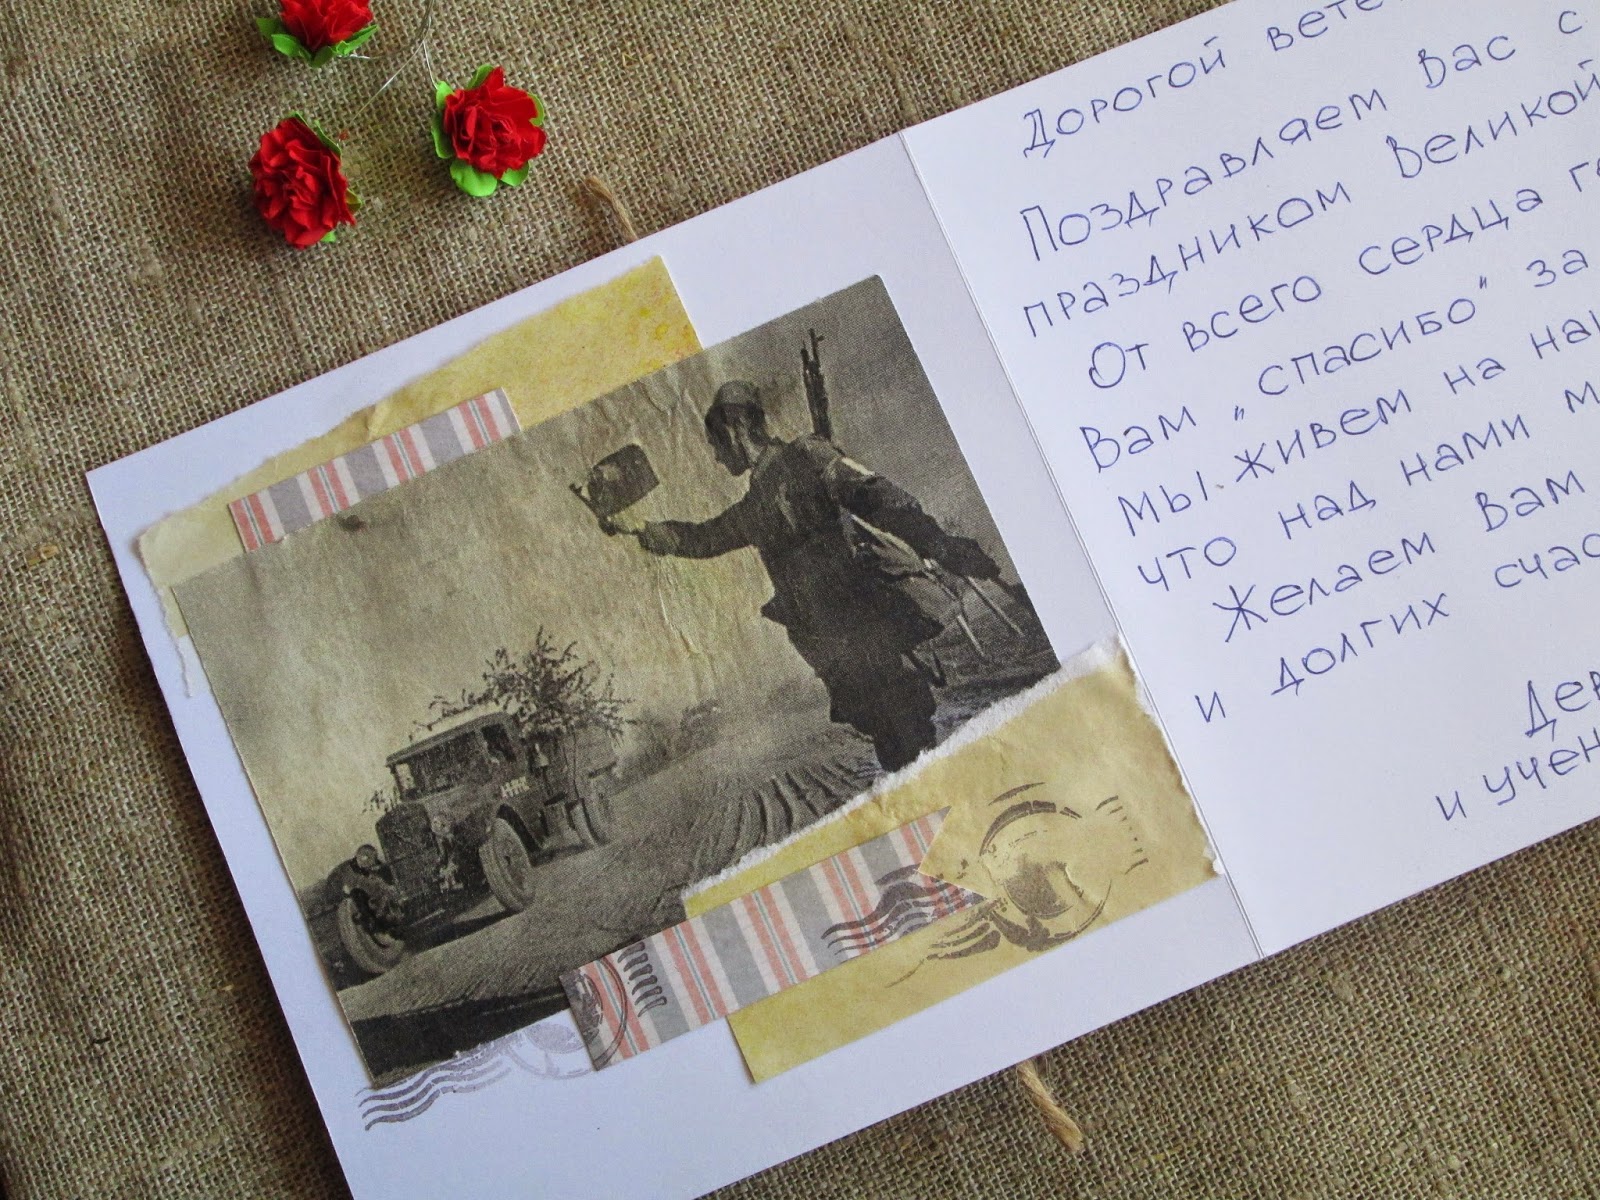 Дорогой
Поздравляем Вас с
праздником Великой
От всего сердца
Вам „спасибо" за
мы живем на
что над нами
Желаем Вам
и долгих
и